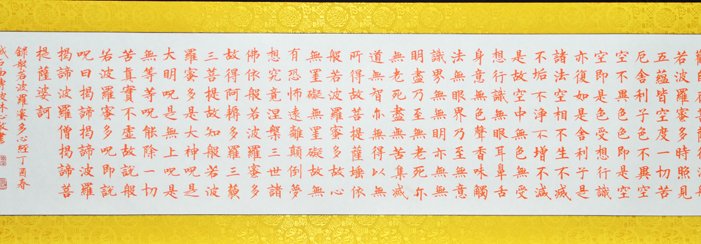 若波羅蜜多時照見
五蘊皆空度一切苦
厄舍利子色不異空
空不異色色即是空
空即是色受想行識
亦復如是舍利子是
諸法空相不生不滅
不垢不淨不增不減
是故空中無色無受
想行識無眼耳鼻舌
身意無色聲香味觸
法無眼界乃至無意
識界無無明亦無無
明盡乃至無老死亦
無老死盡無苦集滅
道無智亦無得以無
所得故菩提薩埵依
般若波羅蜜多故心
無罣礙無罣礙故無
有恐怖遠離顛倒夢
想究竟涅槃三世諸
佛依般若波羅蜜多
故得阿耨多羅三藐
三菩提故知般若波
羅蜜多是大神呪是
大明呪是無上呪是
無等等呪能除一切
苦真實不虛故說般
若波羅蜜多呪即說
呪曰揭諦揭諦波羅
揭諦波羅僧揭諦菩
提薩婆訶
錄般若波羅蜜多心經丁酉春